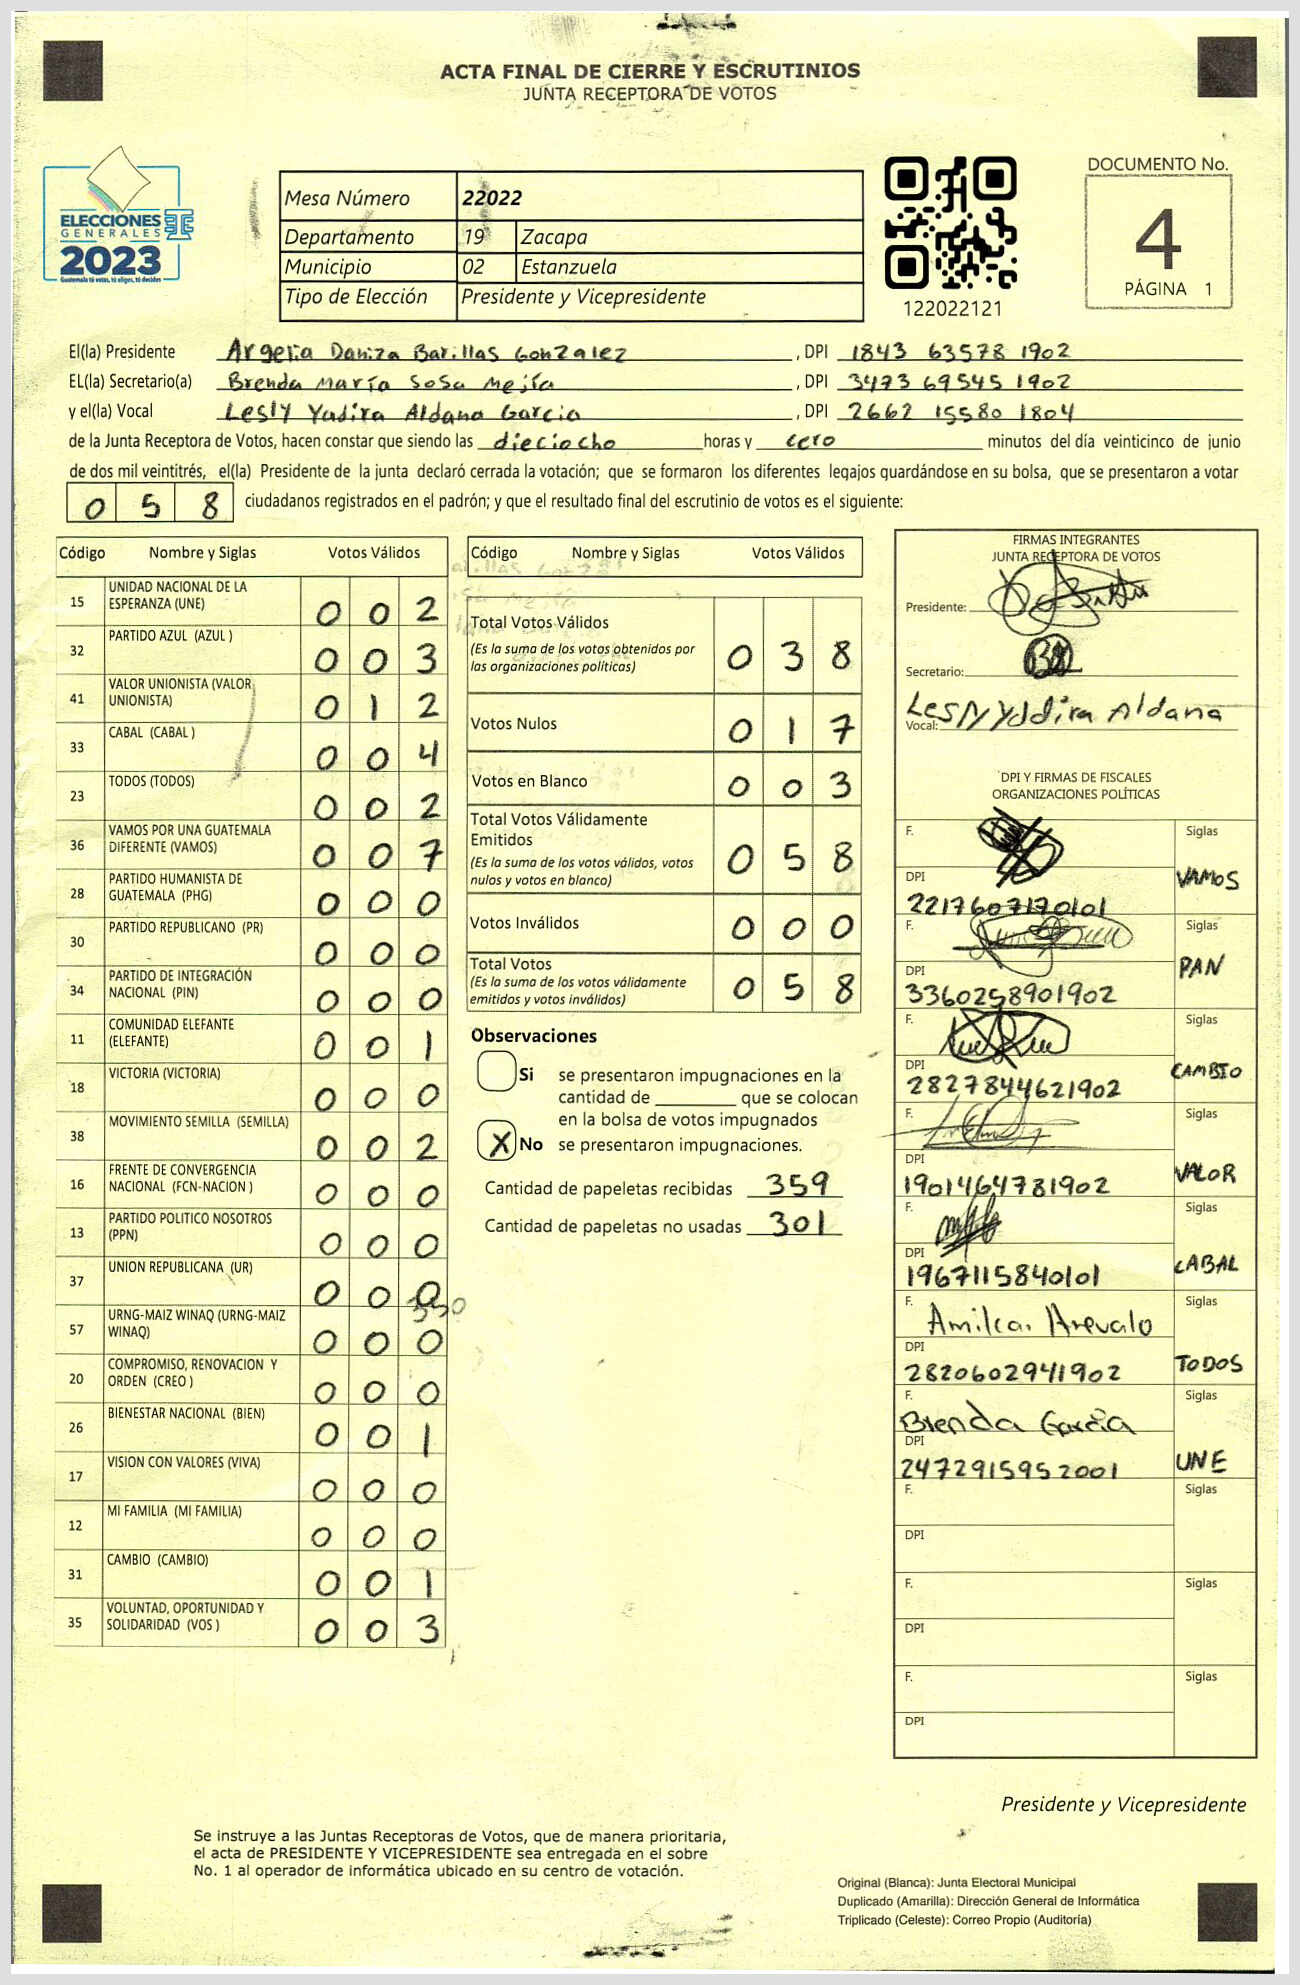 ACTA FINAL DE CIERRE Y ESCRUTINIOS
JUNTA RECEPTORA DE VOTOS
ELECCIONES
GENERALES
2023
Guatemala tú votas, tú eliges, tú decides
Mesa Número 22022
Departamento 19 Zacapa
Municipio 02 Estanzuela
Tipo de Elección Presidente y Vicepresidente
122022121
DOCUMENTO No.
4
PÁGINA 1
El(la) Presidente Argelia Daniza Barillas Gonzalez, DPI 1843 63578 1902
EL(la) Secretario(a) Brenda María Sosa Mejía, DPI 3473 69545 1902
y el(la) Vocal Lesly Yadira Aldana Garcia, DPI 2662 15580 1804
de la Junta Receptora de Votos, hacen constar que siendo las dieciocho horas y cero minutos del día veinticinco de junio
de dos mil veintitrés, el(la) Presidente de la junta declaró cerrada la votación; que se formaron los diferentes legajos guardándose en su bolsa, que se presentaron a votar
0 5 8 ciudadanos registrados en el padrón; y que el resultado final del escrutinio de votos es el siguiente:
Código Nombre y Siglas Votos Válidos
15 UNIDAD NACIONAL DE LA ESPERANZA (UNE) 0 0 2
32 PARTIDO AZUL (AZUL ) 0 0 3
41 VALOR UNIONISTA (VALOR UNIONISTA) 0 1 2
33 CABAL (CABAL ) 0 0 4
23 TODOS (TODOS) 0 0 2
36 VAMOS POR UNA GUATEMALA DIFERENTE (VAMOS) 0 0 7
28 PARTIDO HUMANISTA DE GUATEMALA (PHG) 0 0 0
30 PARTIDO REPUBLICANO (PR) 0 0 0
34 PARTIDO DE INTEGRACIÓN NACIONAL (PIN) 0 0 0
11 COMUNIDAD ELEFANTE (ELEFANTE) 0 0 1
18 VICTORIA (VICTORIA) 0 0 0
38 MOVIMIENTO SEMILLA (SEMILLA) 0 0 2
16 FRENTE DE CONVERGENCIA NACIONAL (FCN-NACION ) 0 0 0
13 PARTIDO POLITICO NOSOTROS (PPN) 0 0 0
37 UNION REPUBLICANA (UR) 0 0 0
57 URNG-MAIZ WINAQ (URNG-MAIZ WINAQ) 0 0 0
20 COMPROMISO, RENOVACION Y ORDEN (CREO ) 0 0 0
26 BIENESTAR NACIONAL (BIEN) 0 0 1
17 VISION CON VALORES (VIVA) 0 0 0
12 MI FAMILIA (MI FAMILIA) 0 0 0
31 CAMBIO (CAMBIO) 0 0 1
35 VOLUNTAD, OPORTUNIDAD Y SOLIDARIDAD (VOS ) 0 0 3
Código Nombre y Siglas Votos Válidos
Total Votos Válidos 0 3 8
(Es la suma de los votos obtenidos por
las organizaciones políticas)
Votos Nulos 0 1 7
Votos en Blanco 0 0 3
Total Votos Válidamente
Emitidos 0 5 8
(Es la suma de los votos válidos, votos
nulos y votos en blanco)
Votos Inválidos 0 0 0
Total Votos 0 5 8
(Es la suma de los votos válidamente
emitidos y votos inválidos)
Observaciones
Si se presentaron impugnaciones en la
cantidad de ________ que se colocan
en la bolsa de votos impugnados
X No se presentaron impugnaciones.
Cantidad de papeletas recibidas 359
Cantidad de papeletas no usadas 301
FIRMAS INTEGRANTES
JUNTA RECEPTORA DE VOTOS
Presidente:
Secretario:
Lesly Yadira Aldana
Vocal:
DPI Y FIRMAS DE FISCALES
ORGANIZACIONES POLÍTICAS
F. Siglas
DPI VAMOS
2217607170101
F. Siglas
DPI PAN
3360258901902
F. Siglas
DPI CAMBIO
2827844621902
F. Siglas
DPI VALOR
1901464781902
F. Siglas
DPI CABAL
1967115840101
F. Amilcar Arevalo Siglas
DPI TODOS
2820602941902
F. Siglas
Brenda García
DPI UNE
2472915952001
F. Siglas
DPI
F. Siglas
DPI
F. Siglas
DPI
Presidente y Vicepresidente
Se instruye a las Juntas Receptoras de Votos, que de manera prioritaria,
el acta de PRESIDENTE Y VICEPRESIDENTE sea entregada en el sobre
No. 1 al operador de informática ubicado en su centro de votación.
Original (Blanca): Junta Electoral Municipal
Duplicado (Amarilla): Dirección General de Informática
Triplicado (Celeste): Correo Propio (Auditoría)